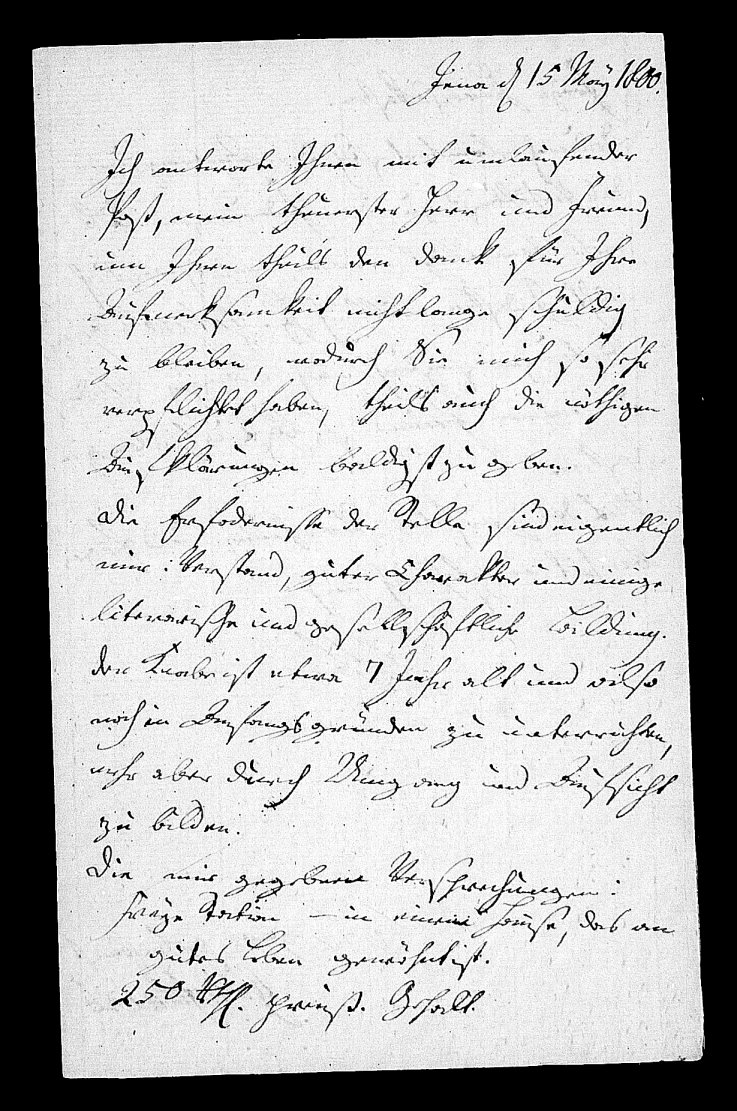 Jena d 15 May 1800.
Ich antworte Ihnen mit umlaufender
Post, mein theuerster Herr und Freund,
um Ihnen theils den Dank für Ihre
Aufmerksamkeit nicht lange schuldig
zu bleiben, wodurch Sie mich so sehr
verpflichtet haben, theils auch die nöthigen
Aufklärungen baldigst zu geben.
Die Erfodernisse der Stelle sind eigentlich
nur: Verstand, guter Charakter und einige
literarische und gesellschaftliche Bildung.
Der Knabe ist etwa 7 Jahr alt und also
noch in Anfangsgründen zu unterrichten,
mehr aber durch Umgang und Aufsicht
zu bilden.
Die mir gegebenen Versprechungen:
Freye Station – in einem Hause, das an
gutes Leben gewöhnt ist.
250 Rthl. preuß. Gehalt.